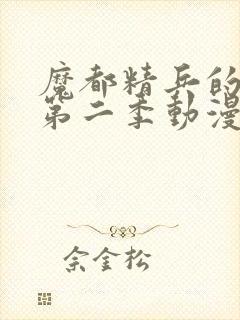 魔都精兵的
第二季動漫
佘金松